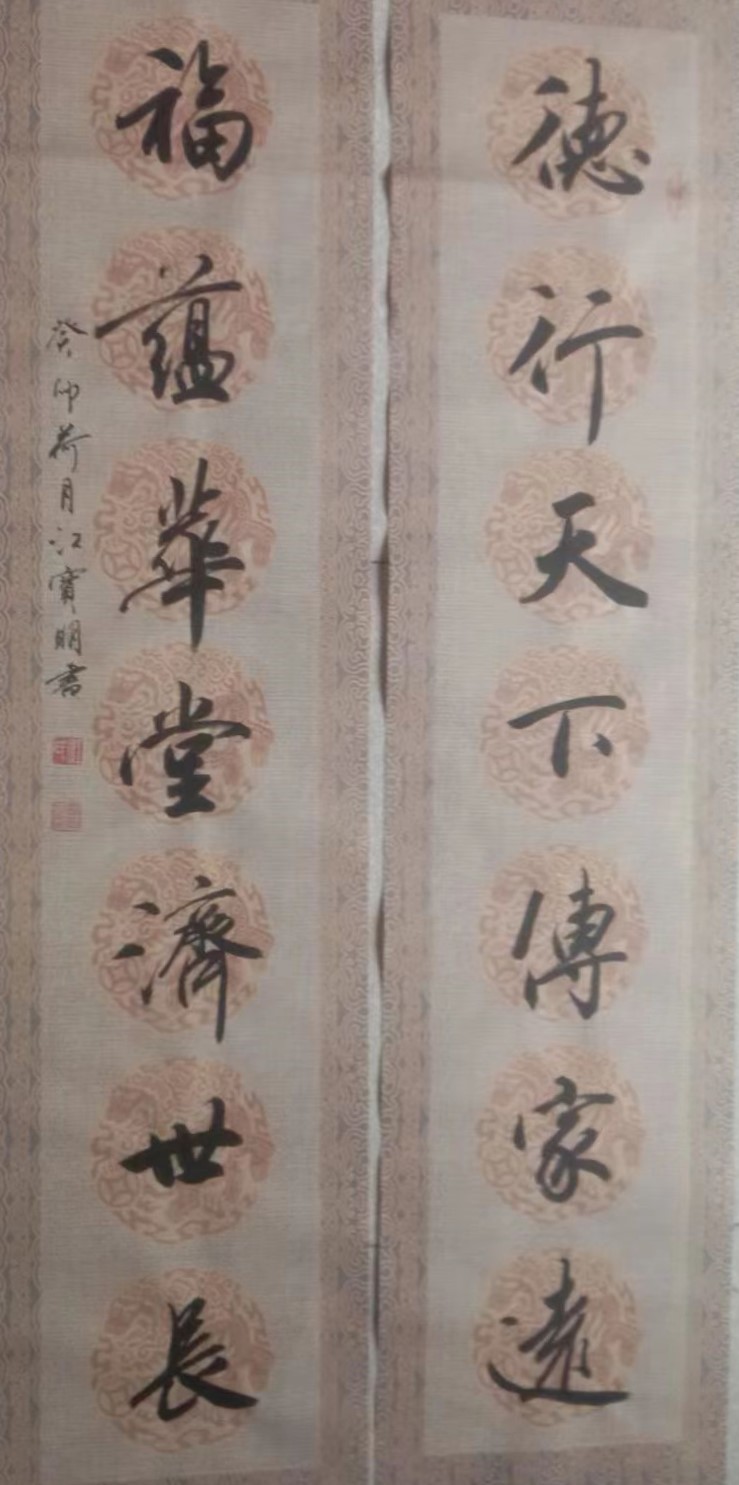 德行天下傳家遠
福蘊華堂濟世長
癸卯荷月江寶明書